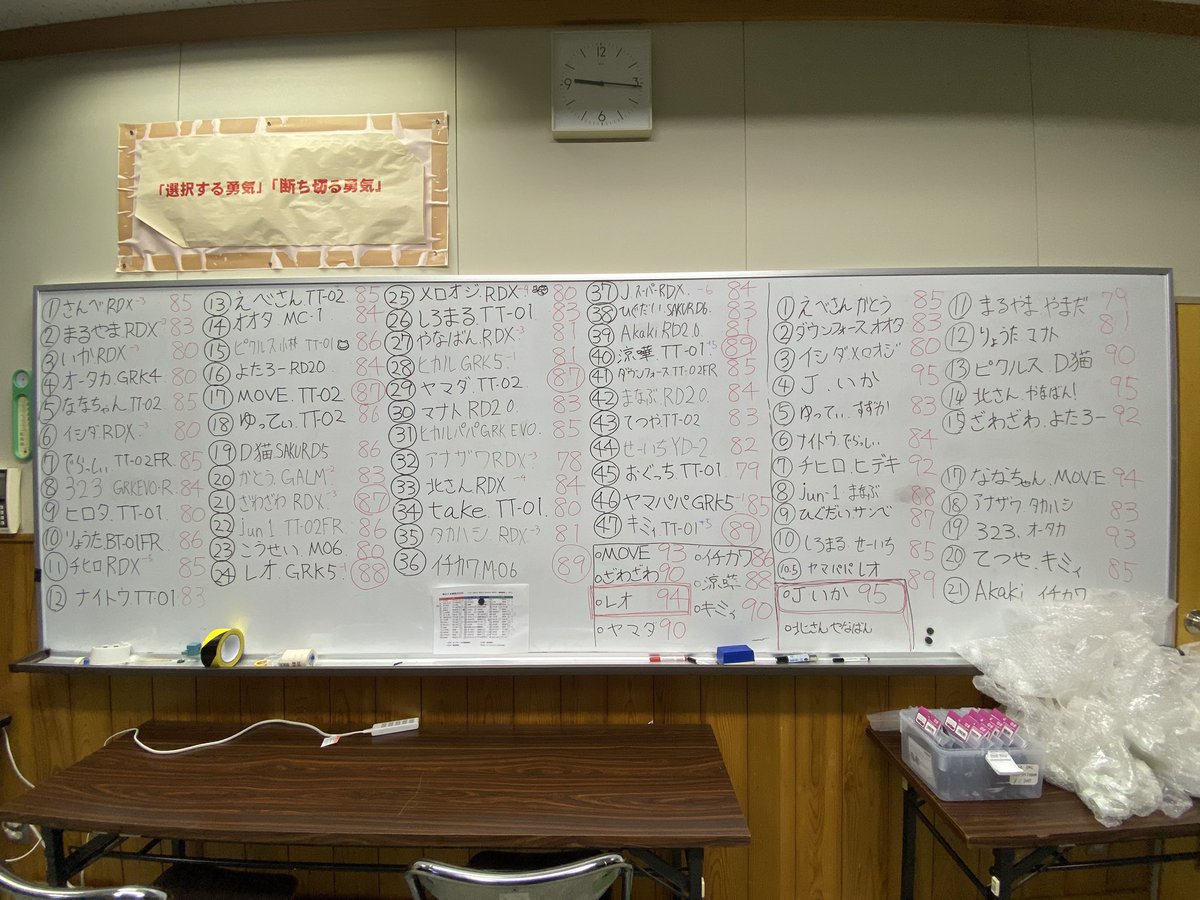 12
9
3
6
「選択する勇気」「断ち切る勇気」
① さんべ RDX -3 85
② まるやま RDX -3 83
③ いか RDX -3 80
④ オータカ GRK4 80
⑤ ななちゃん TT-02 85
⑥ イシダ RDX -3 80
⑦ でらっしぃ TT-02FR 85
⑧ 323 GRKEVO-R 84
⑨ ヒロタ TT-01 80
⑩ りょうた BT-01FR 86
⑪ チヒロ RDX -3 85
⑫ ナイトウ TT-01 83
⑬ えべさん TT-02 85
⑭ オオタ MC-1 84
⑮ ピクルス小林 TT-01 86
⑯ よたろー RD2.0 84
⑰ MOVE TT-02 87
⑱ ゆってぃ TT-02 86
⑲ D猫 SAKURD5 86
⑳ かとう GALM -2 83
㉑ ざわざわ RDX -3 87
㉒ jun1 TT-02FR 86
㉓ こうせい M06 80
㉔ レオ GRK5 -1 88
㉕ メロオジ RDX -4 80
㉖ しろまる TT-01 83
㉗ やなばん RDX -3 81
㉘ ヒカル GRK5 -1 81
㉙ ヤマダ TT-02 87
㉚ マナト RD2.0 83
㉛ ヒカルパパ GRK EVO 85
㉜ アナザワ RDX -3 78
㉝ 北さん RDX -4 84
㉞ take TT-01 80
㉟ タカハシ RDX -3 81
㊱ イチカワ M-06 89
㊲ J スーパーRDX -6 84
㊳ ひぐだい SAKURD6 83
㊴ Akaki RD2.0 81
㊵ 涼曄 TT-01 +5 89
㊶ ダウンフォース TT-02FR 85
㊷ まなぶ RD2.0 84
㊸ てつや TT-02 83
㊹ せーいち YD-2 82
㊺ おぐっち TT-01 79
㊻ ヤマパパ GRK5 -1 85
㊼ キミィ TT-01 +5 89
○MOVE 93
○ざわざわ 90
○レオ 94
○ヤマダ 90
○イチカワ 86
○涼曄 88
○キミィ 90
① えべさん かとう 85
② ダウンフォース オオタ 83
③ イシダ メロオジ 80
④ J. いか 95
⑤ ゆってぃ. すずか 83
⑥ ナイトウ. でらっしぃ 84
⑦ チヒロ. ヒデキ 92
⑧ jun-1 まなぶ 88
⑨ ひぐだい サンべ 87
⑩ しろまる せーいち 85
10.5 ヤマパパ レオ 89
○J いか 95
○北さん やなばん
⑪ まるやま やまだ 79
⑫ りょうた マナト 81
⑬ ピクルス. D猫 90
⑭ 北さん. やなばん! 95
⑮ ざわざわ. よたろー 92
⑰ ななちゃん. MOVE 94
⑱ アナザワ タカハシ 83
⑲ 323. オータカ 93
⑳ てつや. キミィ 85
㉑ Akaki イチカワ